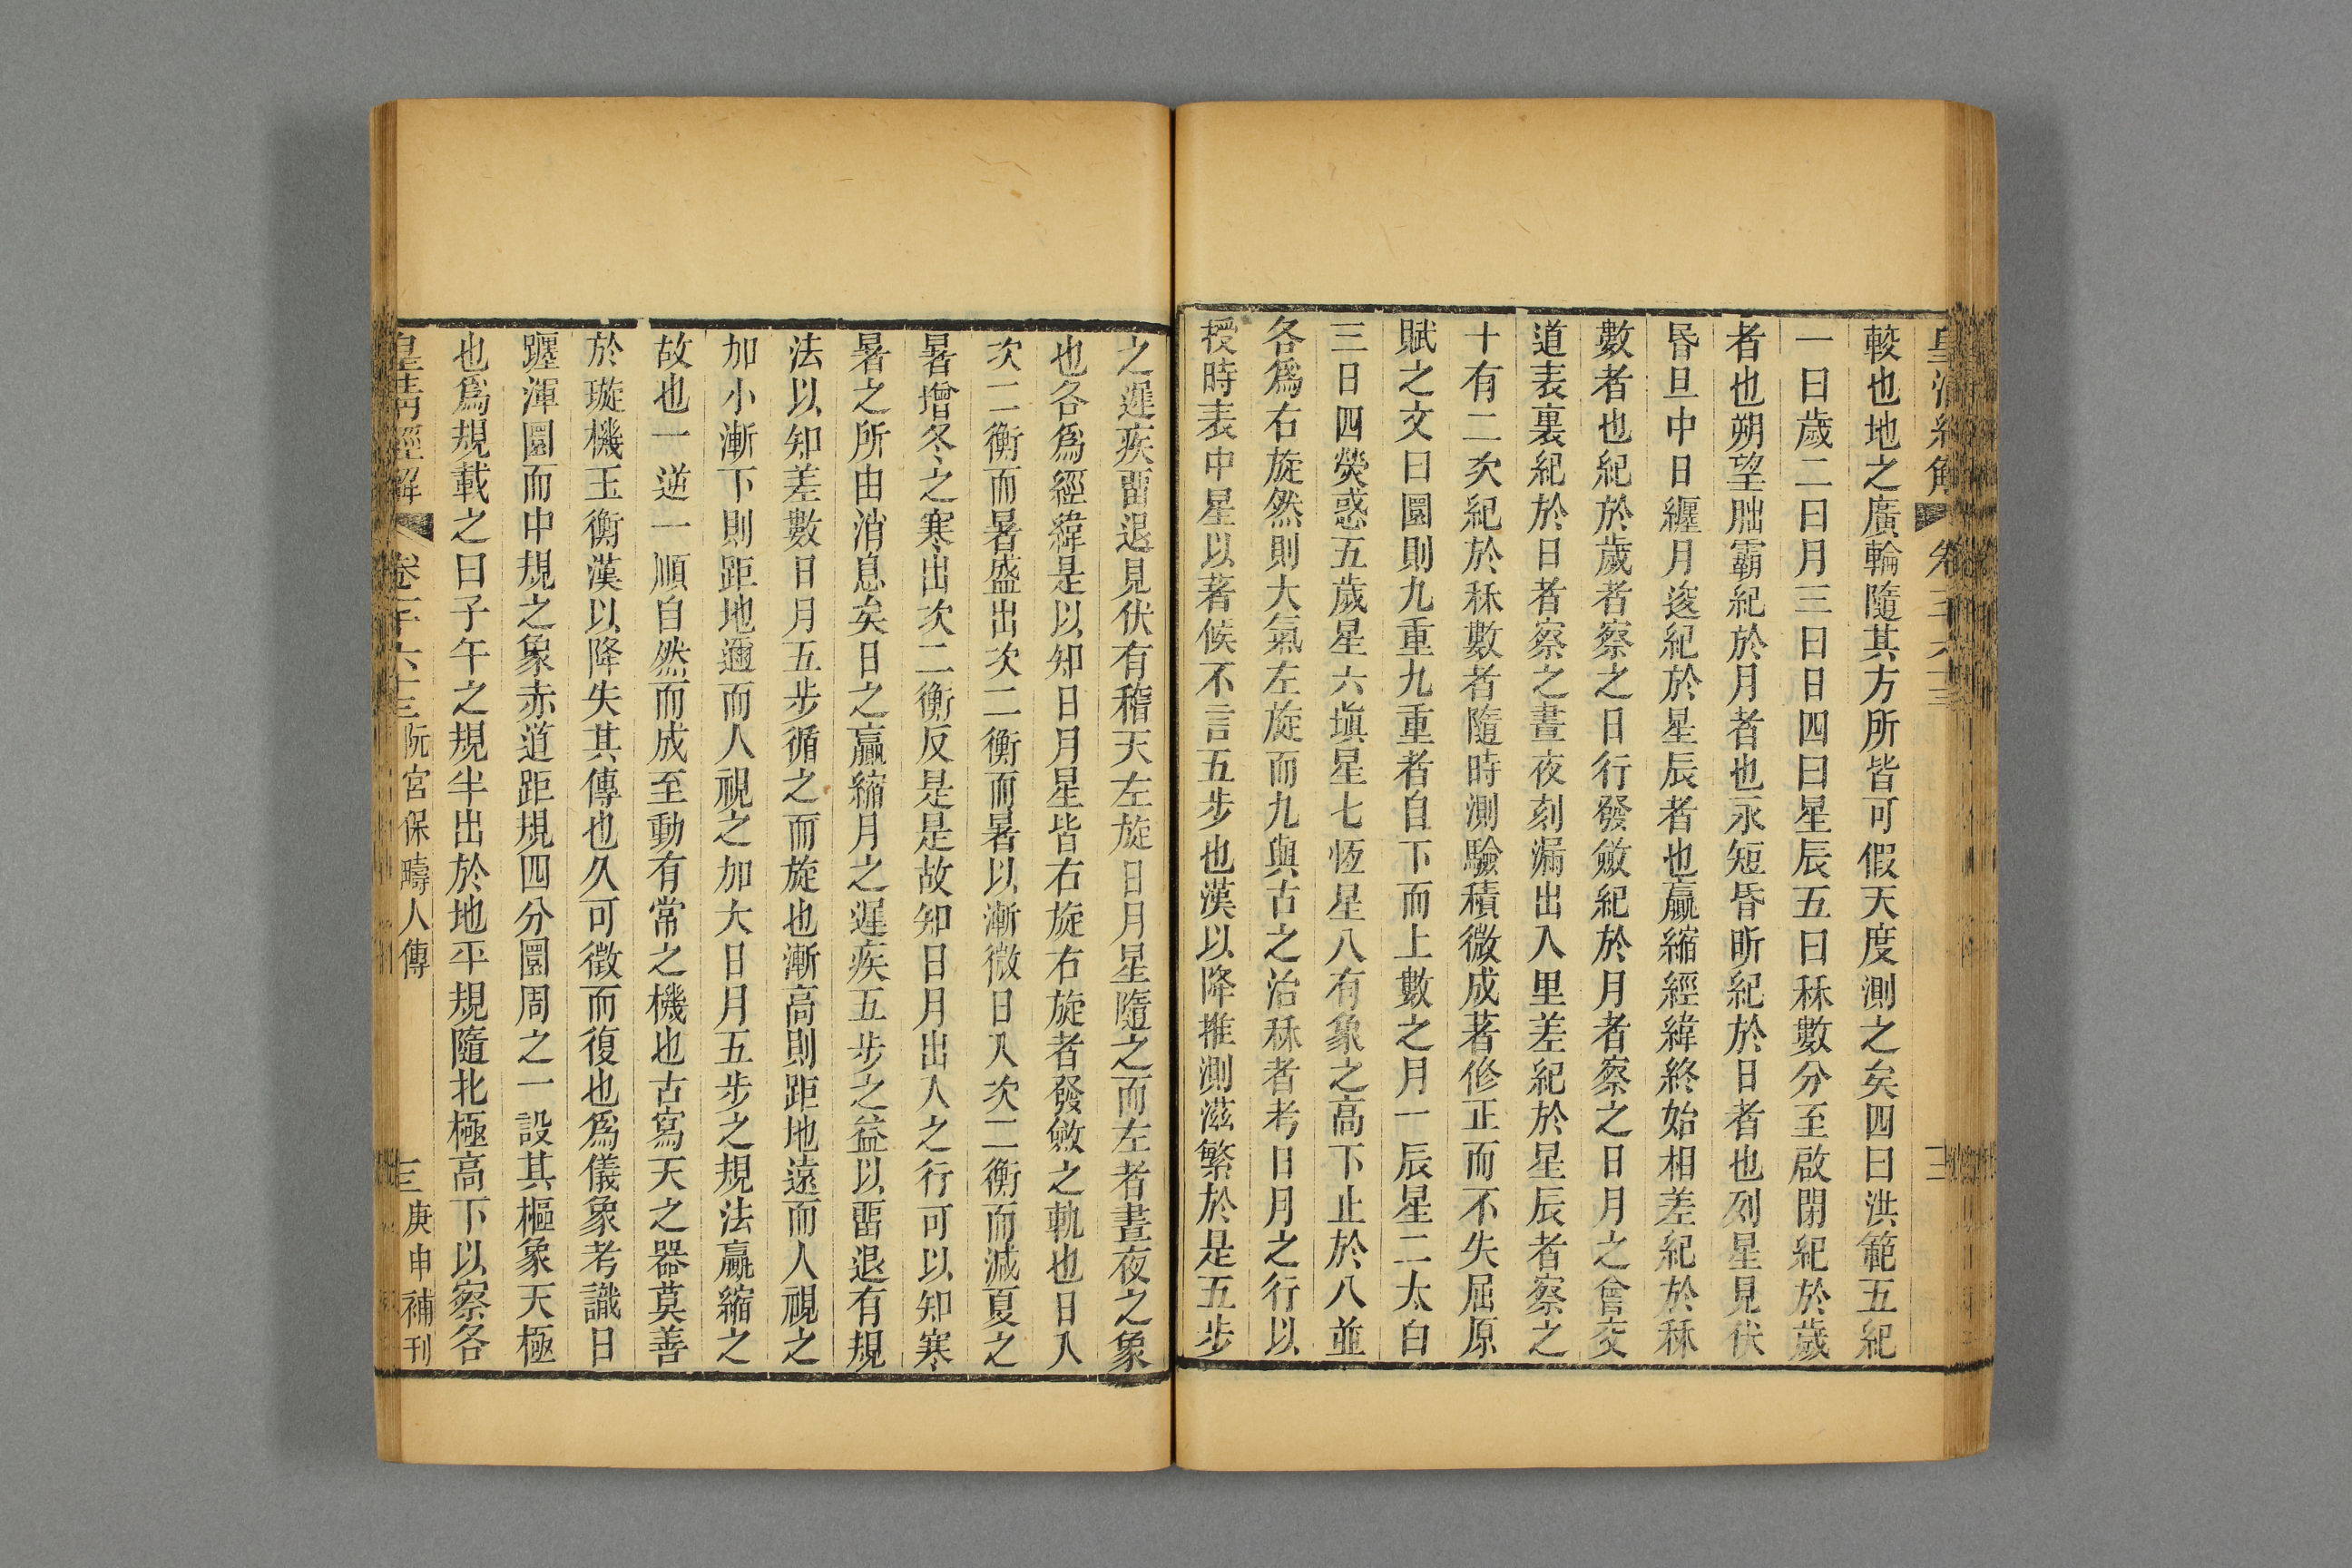 較也地之廣輪隨其方所皆可假天度測之矣四曰洪範五紀
一曰歲二曰月三曰日四曰星辰五曰秝數分至啟閉紀於歲
者也朔望朏霸紀於月者也永短昏昕紀於日者也列星見伏
昬旦中日纏月逡紀於星辰者也贏縮經緯終始相差紀於秝
數者也紀於歲者察之日行發斂紀於月者察之日月之會交
道表裏紀於日者察之晝夜刻漏出入里差紀於星辰者察之
十有二次紀於秝數者隨時測驗積微成著修正而不失屈原
賦之文曰圜則九重九重者自下而上數之月一辰星二太白
三日四熒惑五歲星六塡星七恆星八有象之高下止於八並
各爲右旋然則大氣左旋而九與古之治秝者考日月之行以
授時表中星以著候不言五步也漢以降推測滋繁於是五步
之遲疾畱退見伏有稽天左旋日月星隨之而左者晝夜之象
也各爲經緯是以知日月星皆右旋右旋者發斂之軌也日入
次二衡而暑盛出次二衡而暑以漸微日入次二衡而減夏之
暑增冬之寒出次二衡反是是故知日月出入之行可以知寒
暑之所由消息矣日之贏縮月之遲疾五步之益以畱退有規
法以知差數日月五步循之而旋也漸高則距地遠而人視之
加小漸下則距地邇而人視之加大日月五步之規法贏縮之
故也一逆一順自然而成至動有常之機也古寫天之器莫善
於璇機玉衡漢以降失其傳也久可徵而復也爲儀象考識日
躔渾圜而中規之象赤道距規四分圜周之一設其樞象天極
也爲規載之曰子午之規半出於地平規隨北極高下以察各
皇淸經解 卷千六十三 阮宮保疇人傳 三 庚申補刊